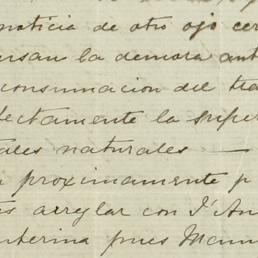 noticia de otro ojo cer
ersan la demora ant
consumacion del tra
fectamente la super
tales naturales —
proximamente p
arreglar con D'An
nterina pues Manu